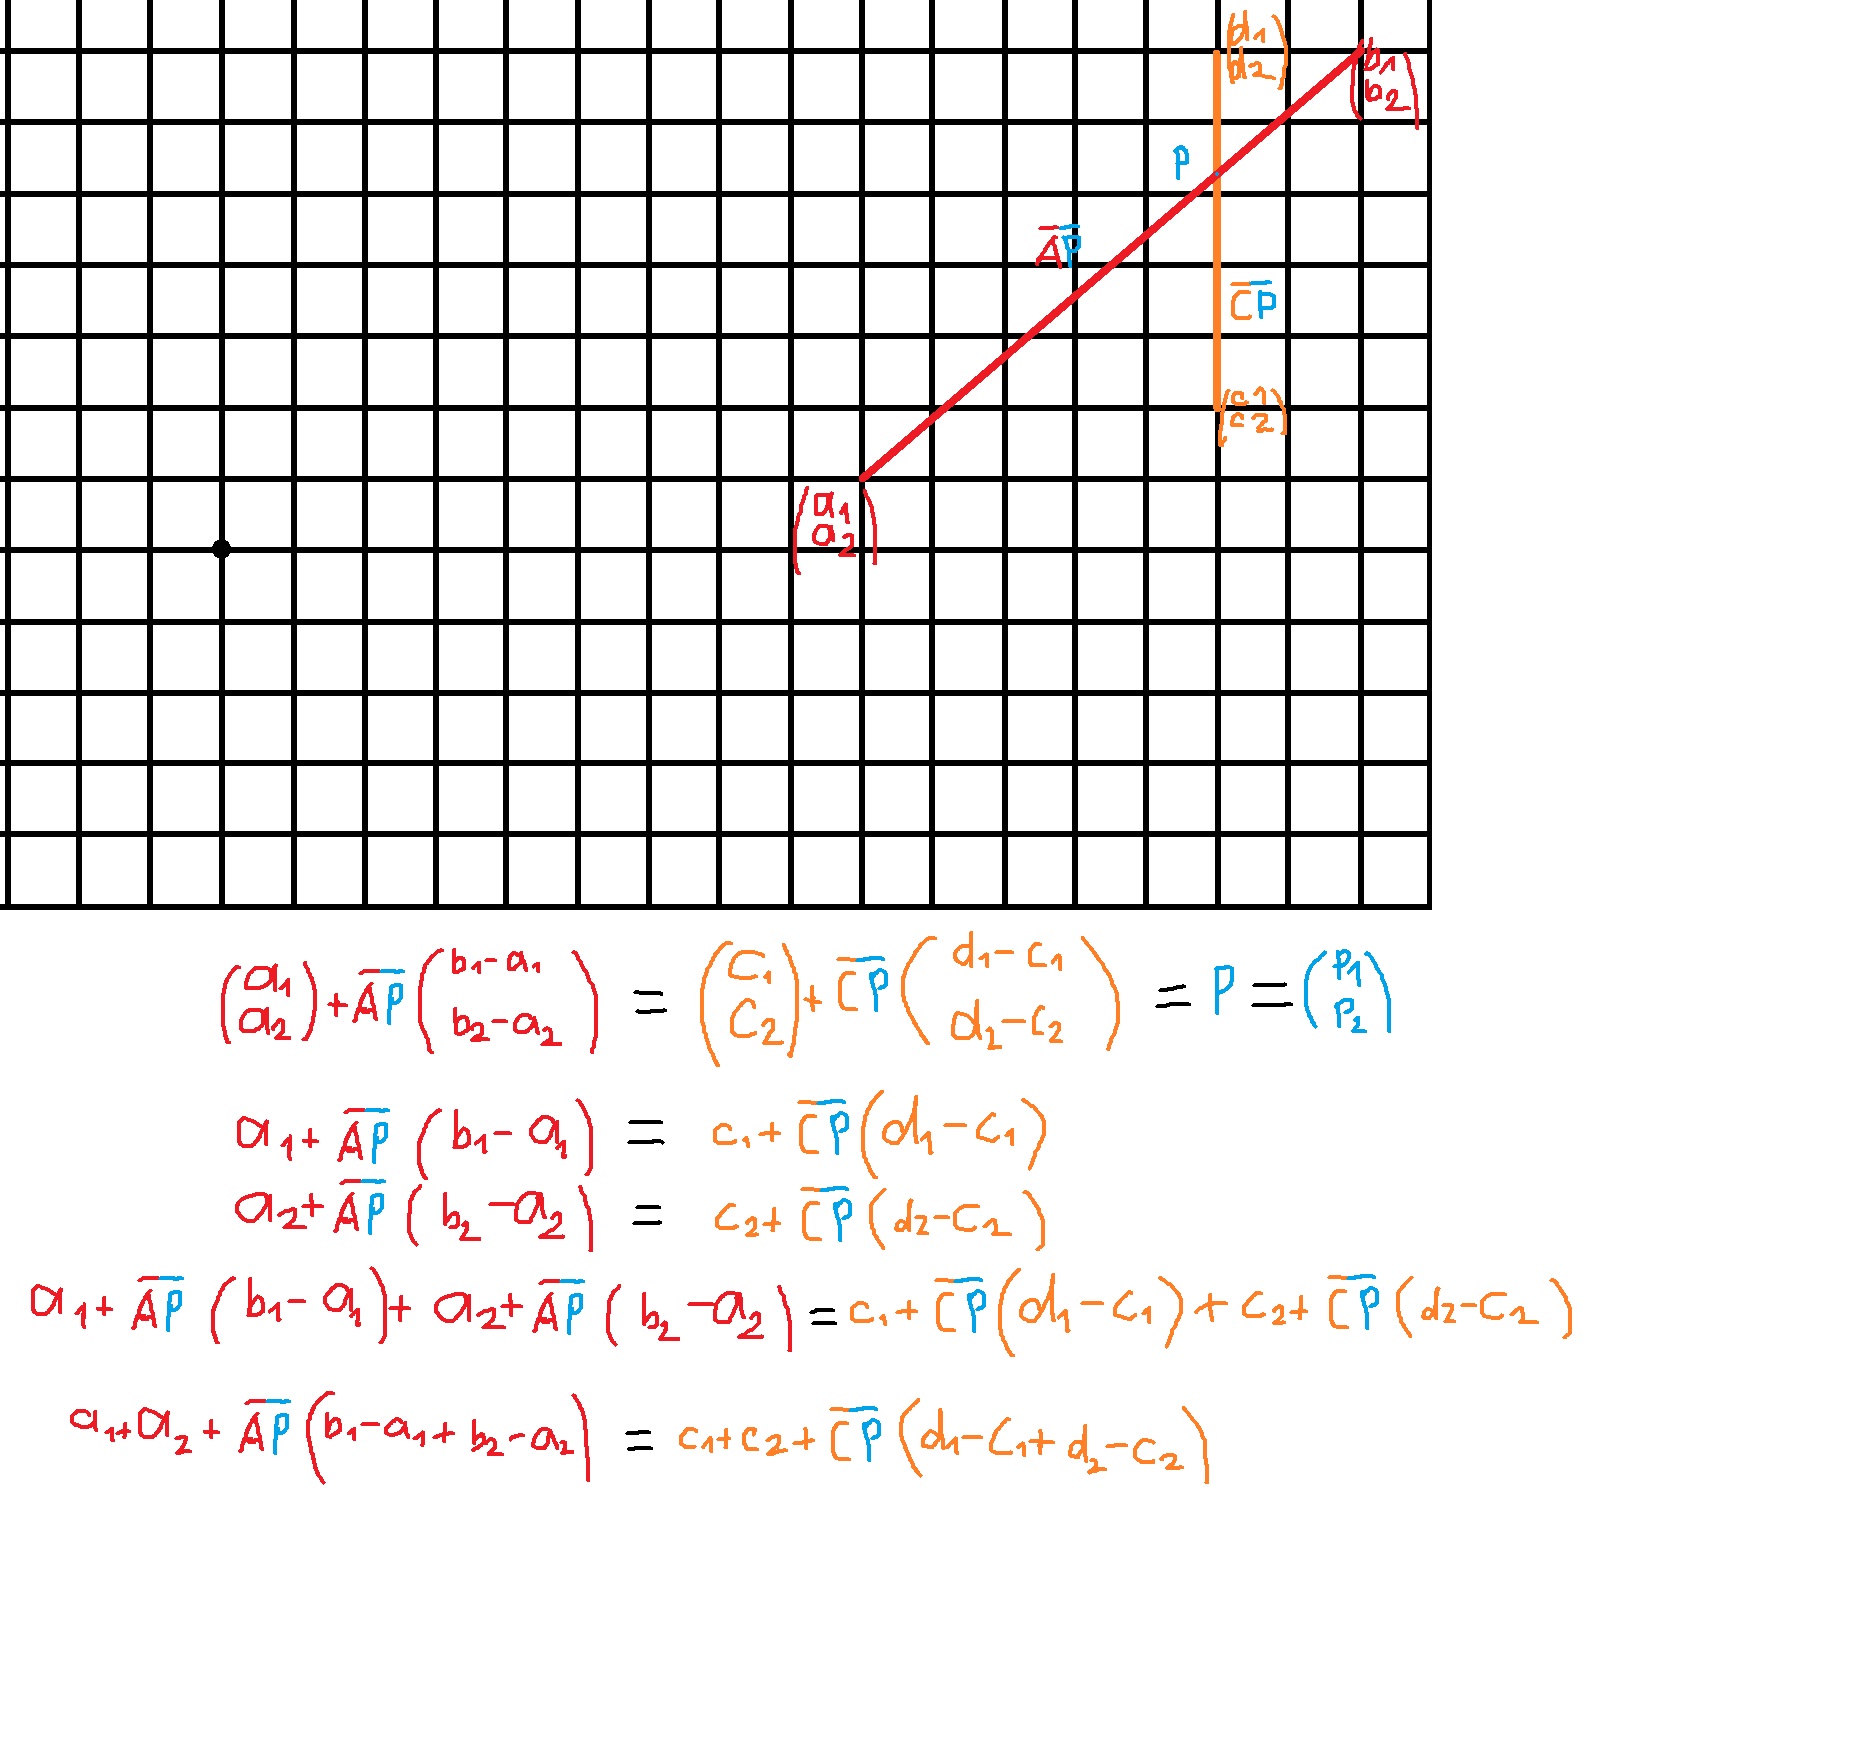 (d1
d2)
(b1
b2)
P
A̅P̅
C̅P̅
(c1
c2)
(a1
a2)
(a1
a2) + A̅P̅ (b1-a1
b2-a2) = (C1
C2) + C̅P̅ (d1-c1
d2-c2) = P = (P1
P2)
a1 + A̅P̅ (b1-a1) = c1 + C̅P̅ (d1-c1)
a2 + A̅P̅ (b2-a2) = c2 + C̅P̅ (d2-c2)
a1 + A̅P̅ (b1-a1) + a2 + A̅P̅ (b2-a2) = c1 + C̅P̅ (d1-c1) + c2 + C̅P̅ (d2-c2)
a1+a2 + A̅P̅ (b1-a1+b2-a2) = c1+c2 + C̅P̅ (d1-c1+d2-c2)